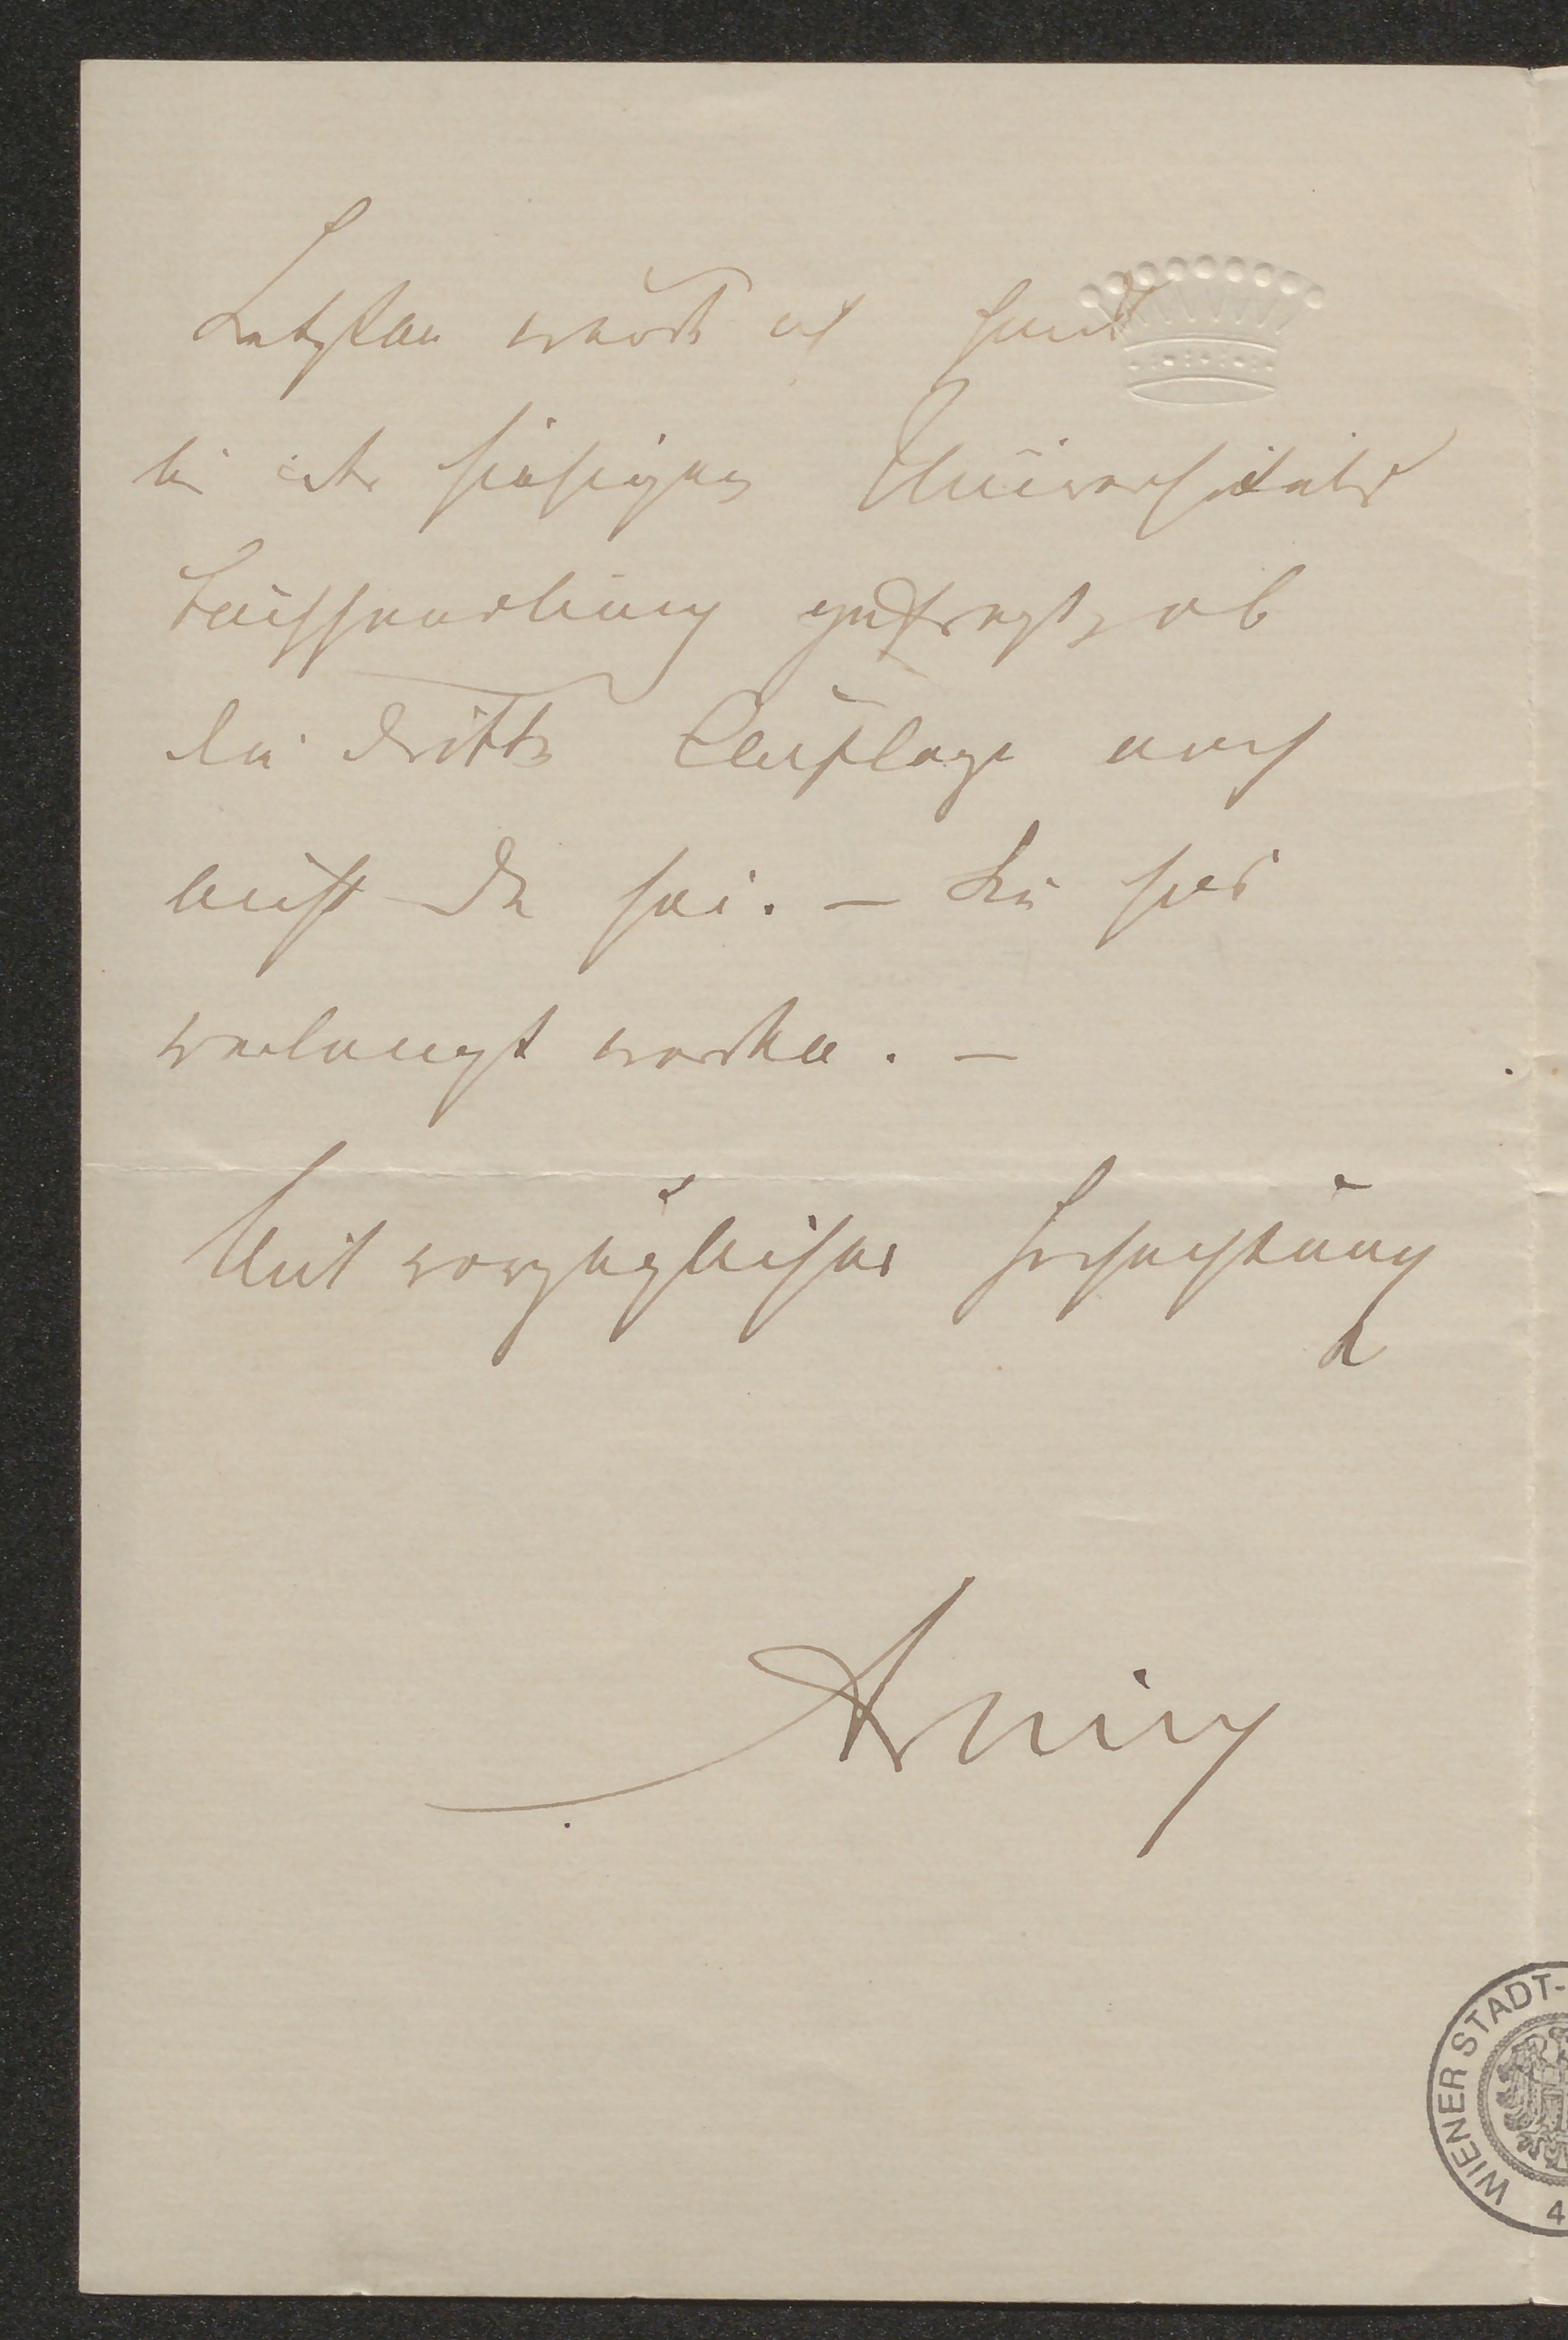 Letzten wurde auch hand
in der hiesigen Universitäts
buchhandlung gefragt, ob
die dritte Auflage noch
nicht da sei. – Sie sei
verlangt worden. –
Mit vorzüglicher Hochachtung
Arnim
WIENER STADT-
4